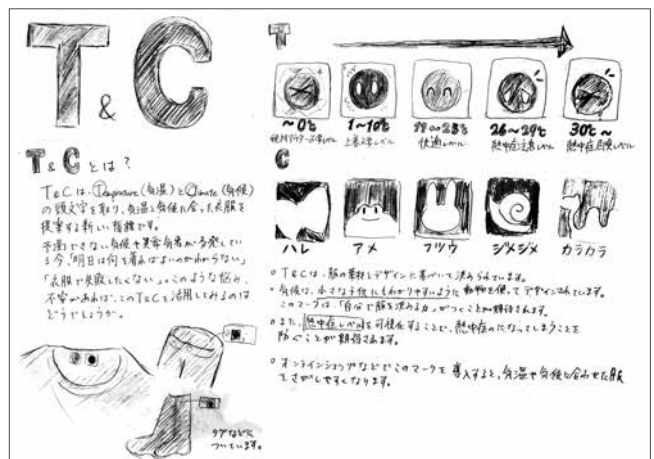 T & C
T & C とは？
T&Cは、Temperature(気温)とClimate(気候)
の頭文字を取り、気温と気候に合った衣服を
提案する新しい指標です。
予測できない気候や異常気象が多発してい
る今、「明日は何を着ればよいのかわからない」
「衣服で失敗したくない」。このような悩み、
不安があれば、このT&Cを活用してみるのは
どうでしょうか。
タグなどに
ついています。
T
〜0℃
1〜10℃
26〜29℃
30℃〜
快適レベル
熱中症注意レベル
熱中症危険レベル
C
ハレ
アメ
フツウ
ジメジメ
カラカラ
○ T&Cは、服の素材とデザインに基づいて決められています。
○ 気候は、小さな子供にもわかりやすいように動物を使ってデザインされています。
このマークは、「自分で服を決める力」がつくことが期待されます。
○ また、熱中症レベルを可視化することで、熱中症のになってしまうことを
防ぐことが期待されます。
○ オンラインショップなどでこのマークを導入すると、気温や気候に合わせた服
てさがしやすくなります。